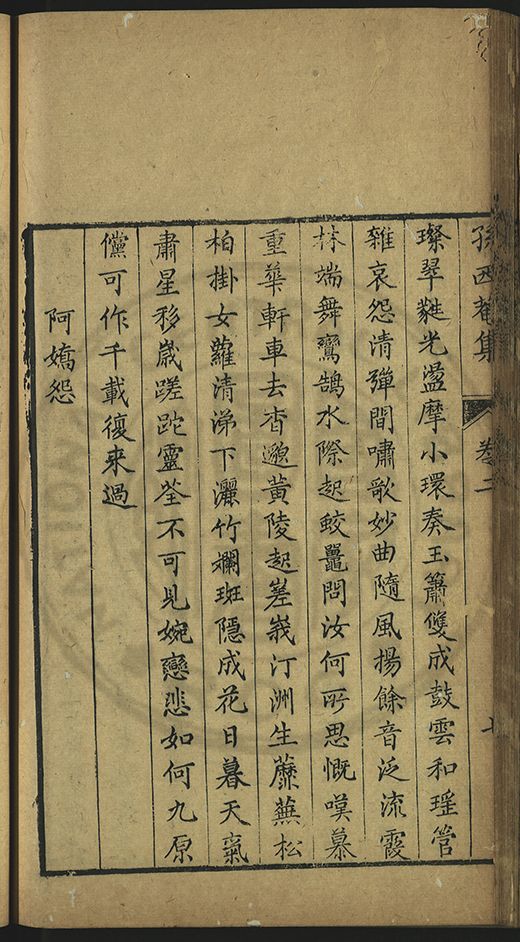 孫西菴集 卷二 七
璨翠蕤光盪摩小環奏玉簫雙成鼓雲和瑤管
雜哀怨清彈間嘯歌妙曲隨風揚餘音泛流霞
林端舞鸞鵠水際起蛟鼉問汝何所思慨嘆慕
重華軒車去杳邈黃陵起嵳峩汀洲生蘼蕪松
柏掛女蘿清涕下灑竹斕斑隱成花日暮天氣
肅星移歲蹉跎靈荃不可見婉戀悲如何九原
儻可作千載復来過
阿嬌怨